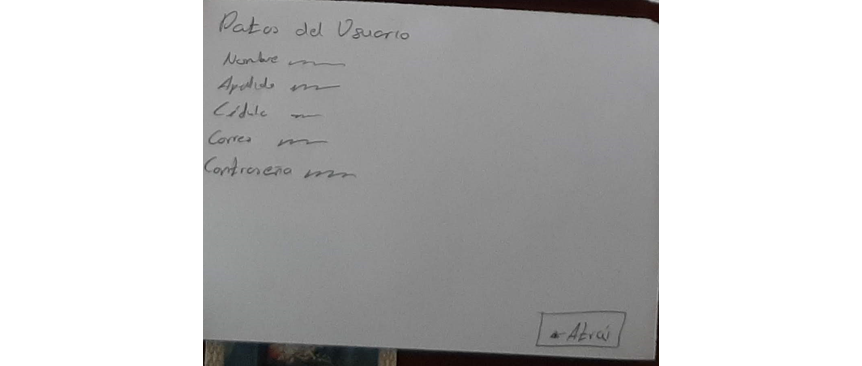 Datos del Usuario
Nombre
Apellido
Cédula
Correo
Contraseña
← Atrás